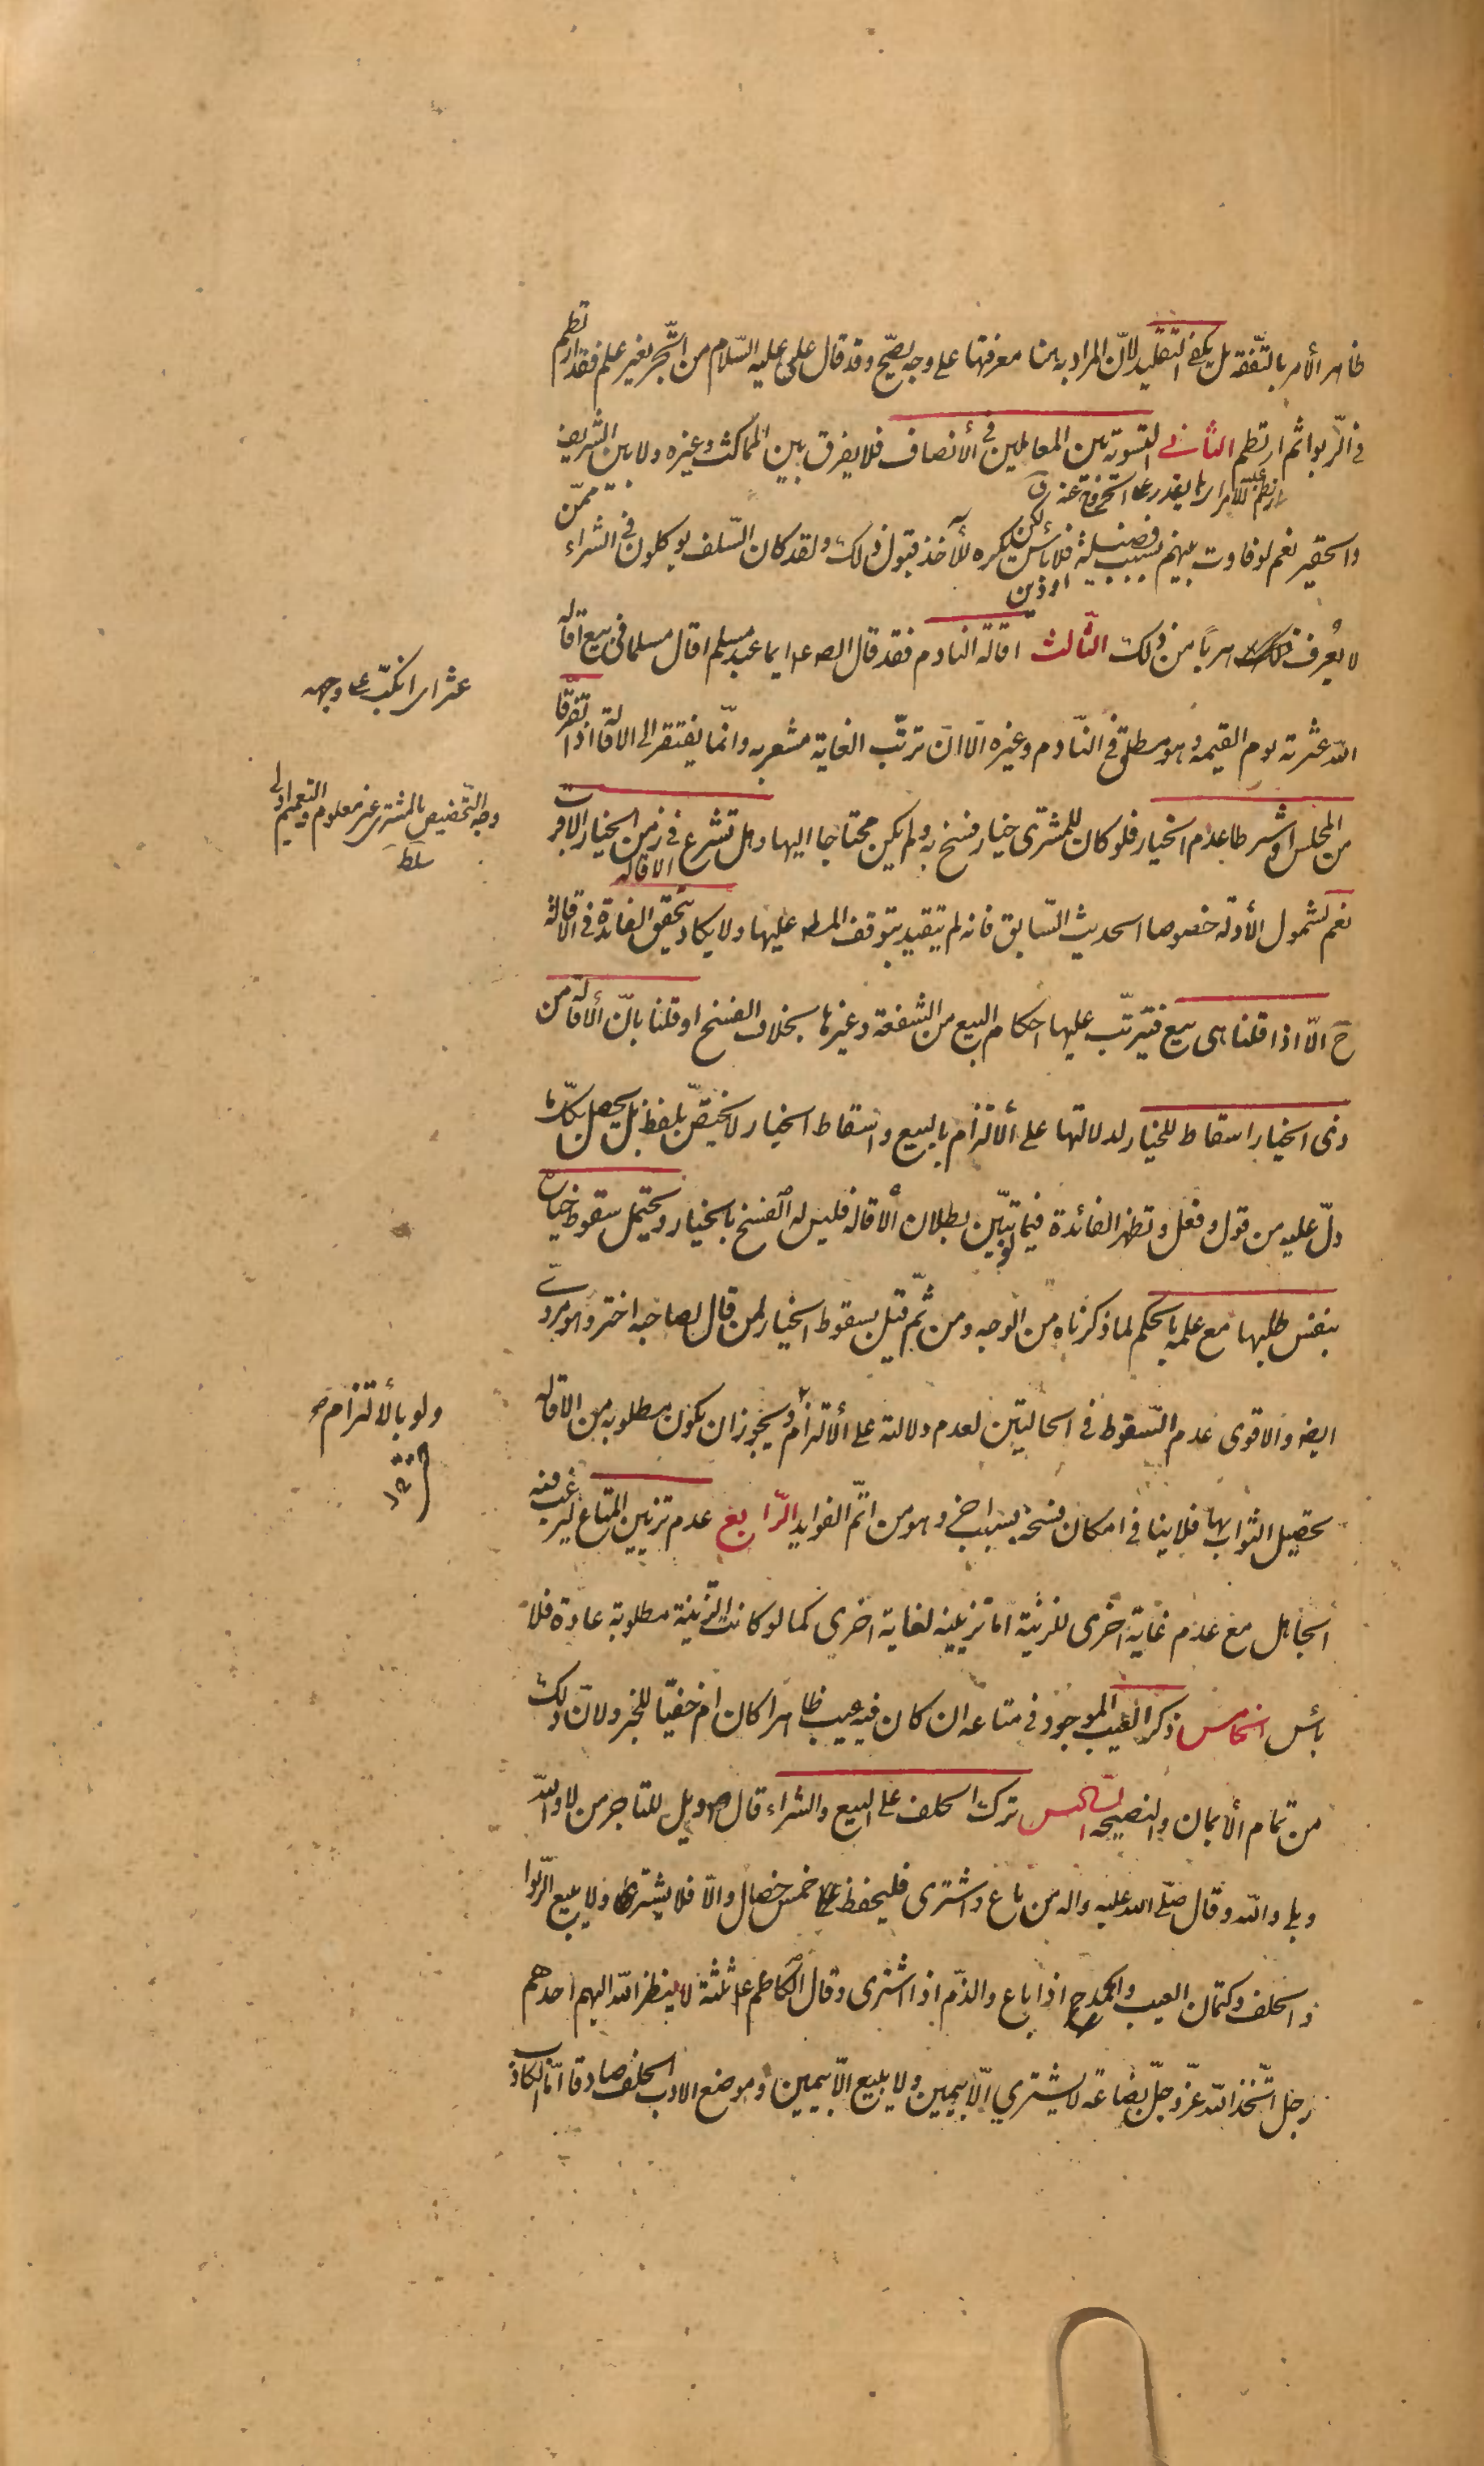 ظاهر الأمر بالتفقه بل يكفى التقليد لانّ المراد به هنا معرفتها على وجه يصحّ وقد قال على عليه السّلام من اتّجر بغير علم فقد ارتطم
فى الرّبوا ثم ارتطم الثانى التسوية بين المعاملين فى الأنصاف فلا يفرق بين المماكث وغيره ولا بين الشريف
ارتطم عليه الامر اذا لم يقدر على الخروج عنه ق
والحقير نعم لو فاوت بينهم بسبب فضيلة ودين فلا بأس لكن يكره للأخذ قبول ذلك ولقد كان السّلف يوكلون فى الشراء ممّن
لا يعرف هربا من ذلك الثّالث اقالة النادم فقد قال الص ع ايما عبد مسلم اقال مسلما فى بيع اقاله
الله عثرته يوم القيمة وهو مطلق فى النّادم وغيره الّا انّ ترتّب الغاية مشعر به وانّما يفتقر الى الاقالة اذا تفرّقا
من المجلس او شرطا عدم الخيار فلو كان للمشترى خيار فسخ به ولم يكن محتاجا اليها وهل تشرع الاقالة فى زمن الخيار الاقرب
نعم لشمول الأدلة خصوصا الحديث السّابق فانه لم يتقيد بتوقف المط عليها ولا يكاد يتحقق الفائدة فى الاقالة
ح الّا اذا قلنا هى بيع فيترتّب عليها احكام البيع من الشفعة وغيرها بخلاف الفسخ او قلنا بانّ الأقالة من
ذى الخيار اسقاط للخيار لدلالتها على الألتزام بالبيع واسقاط الخيار لا يختصّ بلفظ بل يحصل بكلّ ما
دلّ عليه من قول وفعل وتظهر الفائدة فيما لو تبيّن بطلان الأقالة فليس له الفسخ بالخيار ويحتمل سقوط خياره
بنفس طلبها مع علمه بالحكم لما ذكرناه من الوجه ومن ثمّ قيل بسقوط الخيار لمن قال لصاحبه اختر وهو مروىّ
ايضا والاقوى عدم السّقوط فى الحالتين لعدم دلالته على الألتزام ويجوز ان يكون مطلوبه من الاقالة
تحصيل الثواب بها فلا ينافى امكان فسخه بسبب اخر وهو من اتمّ الفوايد الرّابع عدم تزيين المتاع ليرغب فيه
الجاهل مع عدم غاية اخرى للزينة اما تزيينه لغاية اخرى كما لو كانت الزينة مطلوبة عادة فلا
بأس الخامس ذكر العيب الموجود فى متاعه ان كان فيه عيب ظاهرا كان ام خفيّا للخبر ولانّ ذلك
من تمام الأيمان والنصيحة السّادس ترك الحلف على البيع والشراء قال ص ويل للتاجر من لا والله
وبلى والله وقال صلّى الله عليه واله من باع واشترى فليحفظ خمس خصال والّا فلا يشترى ولا يبيع الرّبوا
والحلف وكتمان العيب والمدح اذا باع والذّم اذا اشترى وقال الكاظم ع ثلثة لا ينظر الله اليهم احدهم
رجل اتّخذ الله عزّ وجلّ بضاعة لا يشترى الّا بيمين ولا يبيع الّا بيمين وموضع الادب الحلف صادقا امّا الكاذب
عثر اى انكبّ على وجهه
وجه التّخصيص بالمشترى غير معلوم والتعميم اولى
سلط
ولو بالألتزام